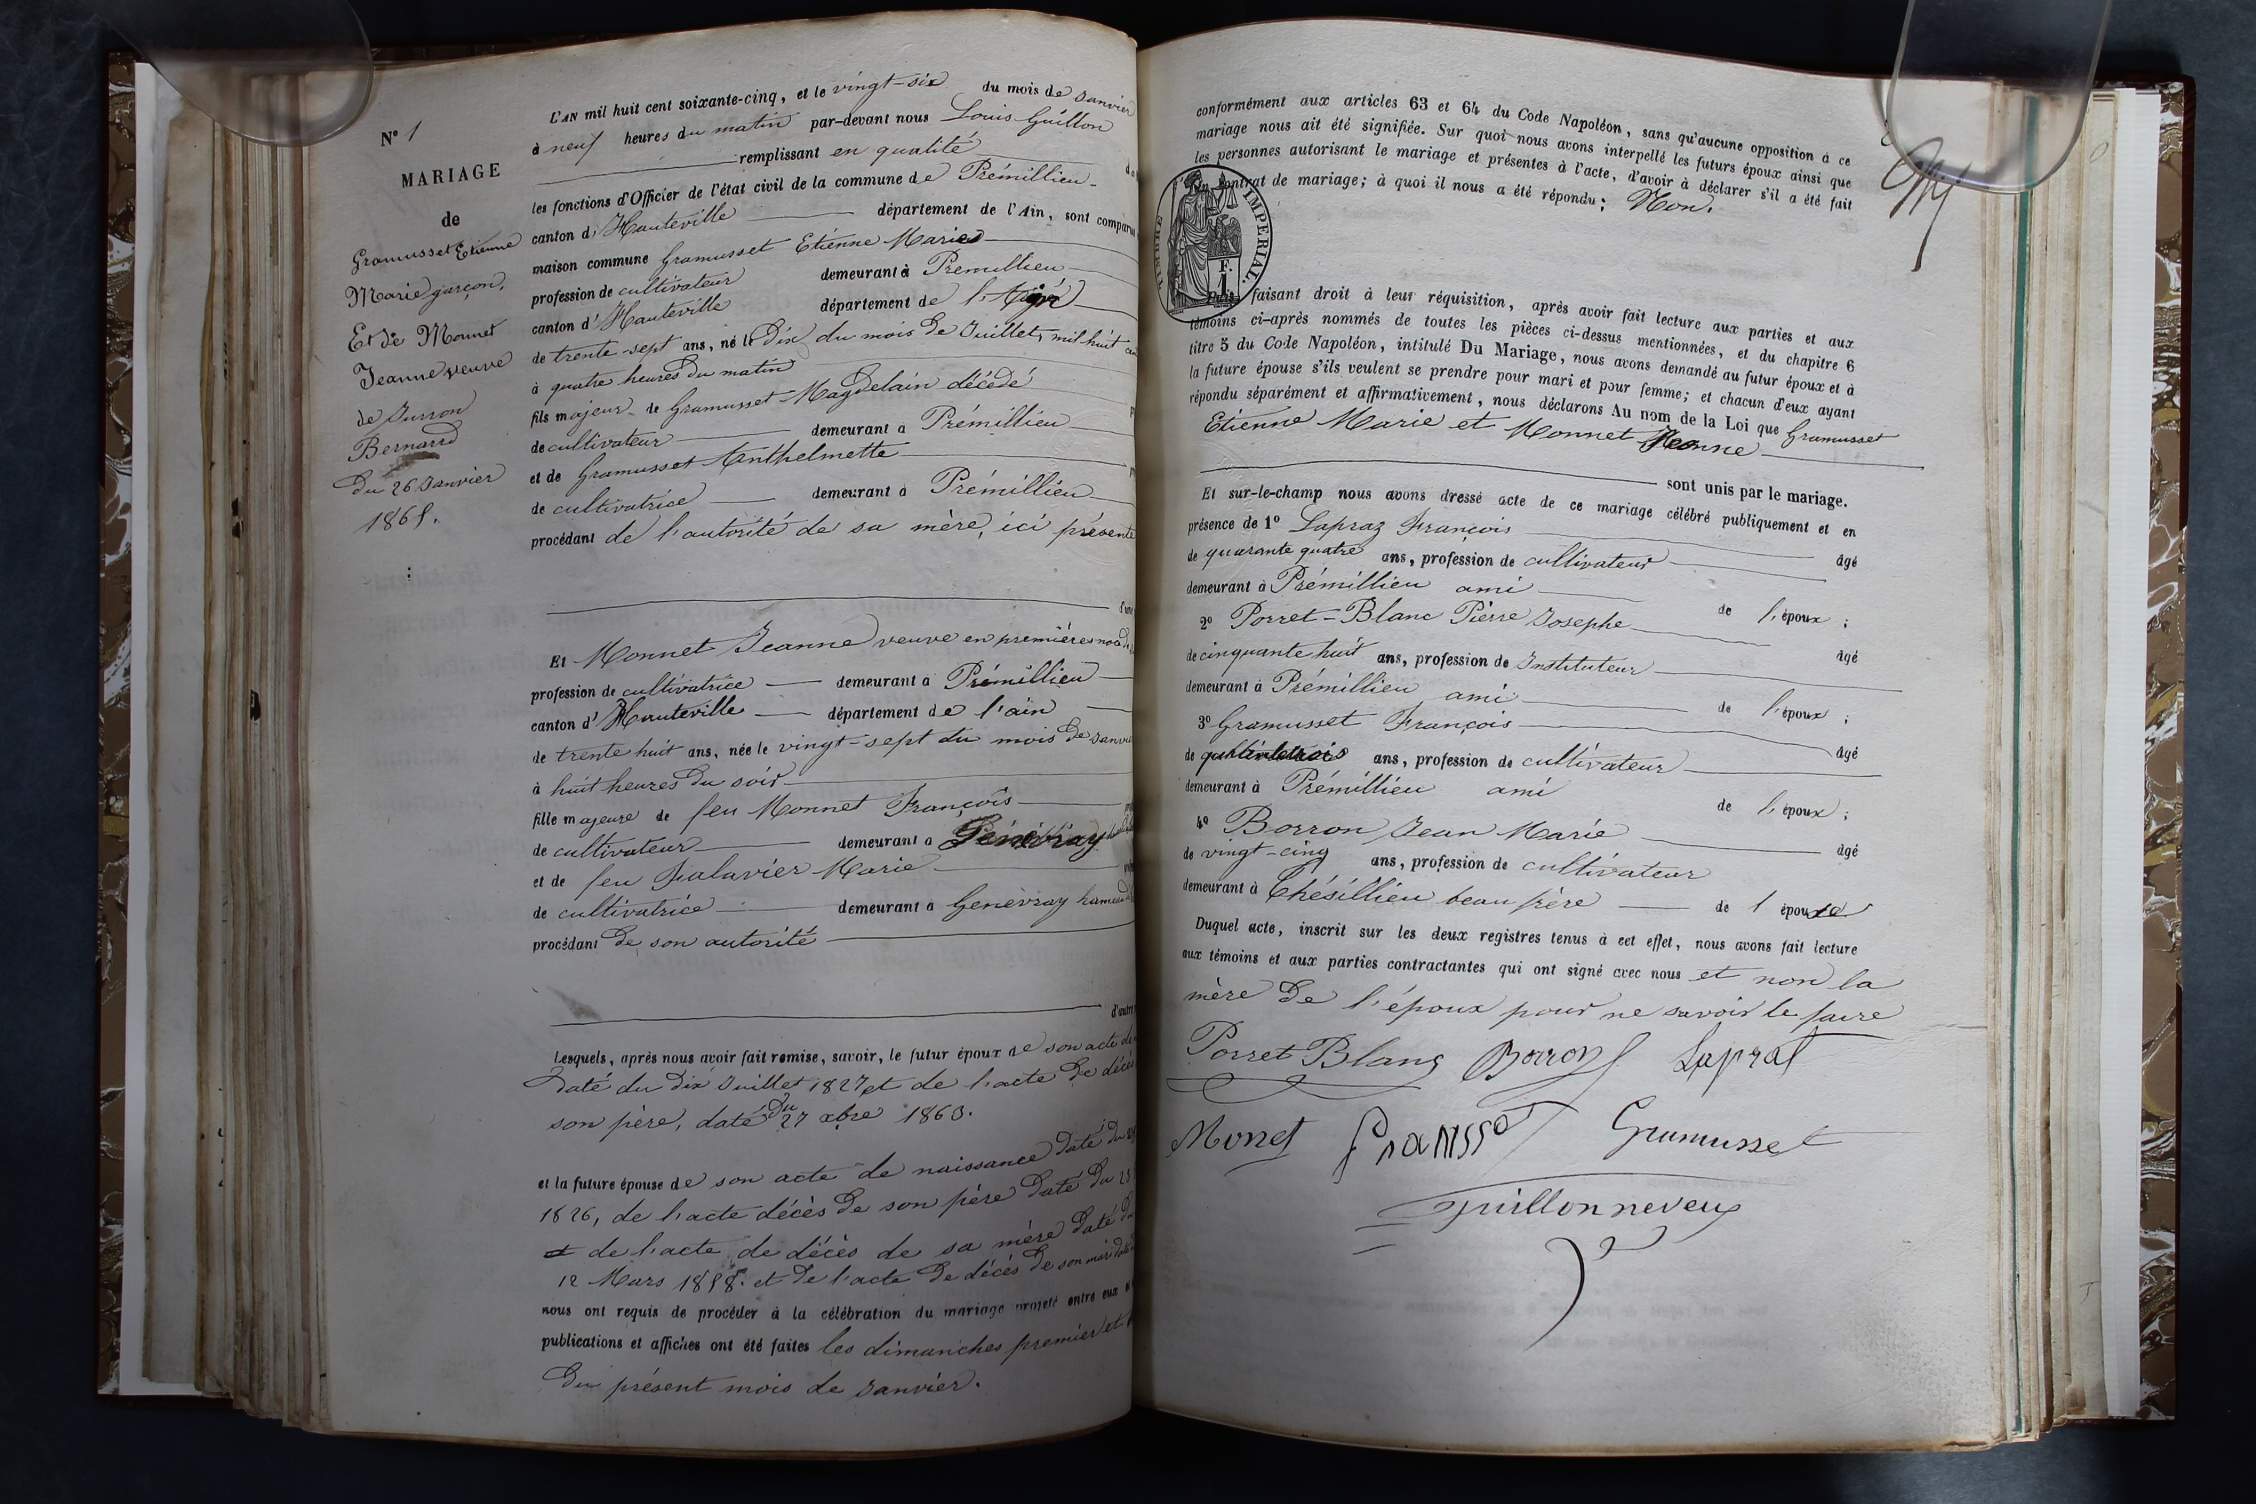 N° 1
MARIAGE
de
Gramusset Etienne
Marie garçon,
Et de Monnet
Jeanne veuve
de Jurron
Bernard
Du 26 Janvier
1865.
L'AN mil huit cent soixante-cinq, et le vingt-six du mois de Janvier
à neuf heures du matin par-devant nous Louis Guillon
remplissant en qualité de
les fonctions d'Officier de l'état civil de la commune de Prémillieu
canton d' Hauteville département de l'Ain, sont comparu
maison commune Gramusset Etienne Marie
profession de cultivateur demeurant à Prémillieu
canton d' Hauteville département de l'
de trente-sept ans, né le Dix du mois de Juillet, mil huit cen
à quatre heures du matin
fils majeur de Gramusset Magdelain décédé
de cultivateur demeurant à Prémillieu
et de Gramusset Anthelmette
de cultivatrice demeurant à Prémillieu
procédant de l'autorité de sa mère, ici présente
d'une
Et Monnet Jeanne veuve en premières noces
profession de cultivatrice demeurant à Prémillieu
canton d' Hauteville département de l'ain
de trente huit ans, née le vingt-sept du mois de Janvie
à huit heures du soir
fille majeure de feu Monnet François
de cultivateur demeurant à Génévray
et de feu Jalavier Marie
de cultivatrice demeurant à Genévray hameau
procédant de son autorité
d'autre
Lesquels, après nous avoir fait remise, savoir, le futur époux de son acte de
Daté du Dix Juillet 1827 et de l'acte de décès
son père, daté du 27 xbre 1863.
et la future épouse de son acte de naissance Daté du
1826, de l'acte décès de son père Daté du 23
et de l'acte de décès de sa mère Daté du
12 Mars 1858. et de l'acte de décès de son mari daté
nous ont requis de procéder à la célébration du mariage projeté entre eux
publications et affiches ont été faites les dimanches premier et
Du présent mois de Janvier.
conformément aux articles 63 et 64 du Code Napoléon, sans qu'aucune opposition à ce
mariage nous ait été signifiée. Sur quoi nous avons interpellé les futurs époux ainsi que
les personnes autorisant le mariage et présentes à l'acte, d'avoir à déclarer s'il a été fait
un contrat de mariage; à quoi il nous a été répondu: Non.
TIMBRE IMPERIAL.
1 F.
Puis, faisant droit à leur réquisition, après avoir fait lecture aux parties et aux
témoins ci-après nommés de toutes les pièces ci-dessus mentionnées, et du chapitre 6
titre 5 du Code Napoléon, intitulé Du Mariage, nous avons demandé au futur époux et à
la future épouse s'ils veulent se prendre pour mari et pour femme; et chacun d'eux ayant
répondu séparément et affirmativement, nous déclarons Au nom de la Loi que Gramusset
Etienne Marie et Monnet Jeanne
sont unis par le mariage.
Et sur-le-champ nous avons dressé acte de ce mariage célébré publiquement et en
présence de 1° Lapraz François
de quarante quatre ans, profession de cultivateur âgé
demeurant à Prémillieu ami de l'époux;
2° Porret-Blanc Pierre Josephe
de cinquante huit ans, profession de Instituteur âgé
demeurant à Prémillieu ami de l'époux;
3° Gramusset François
de ans, profession de cultivateur âgé
demeurant à Prémillieu ami de l'époux;
4° Borron Jean Marie
de vingt-cinq ans, profession de cultivateur âgé
demeurant à Thésillieu beau frère de l épouse
Duquel acte, inscrit sur les deux registres tenus à cet effet, nous avons fait lecture
aux témoins et aux parties contractantes qui ont signé avec nous et non la
mère de l'époux pour ne savoir le faire
Porret Blanc Borron Laprat
Monet Gramusset
Guillon neveu